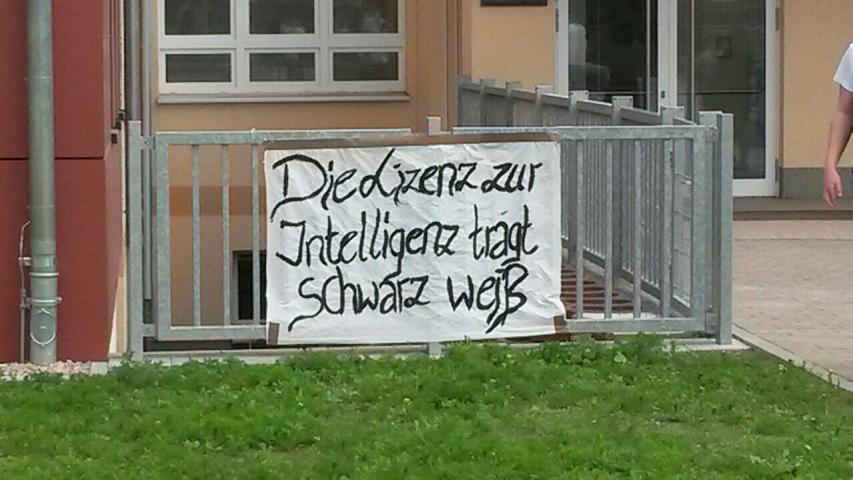 Die Lizenz zur
Intelligenz trägt
schwarz weiß